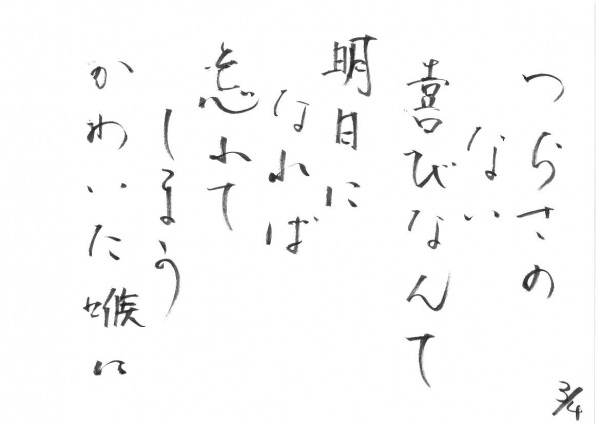 つらさの
ない
喜びなんて
明日に
なれば
忘れて
しまう
かわいた喉に
3/4